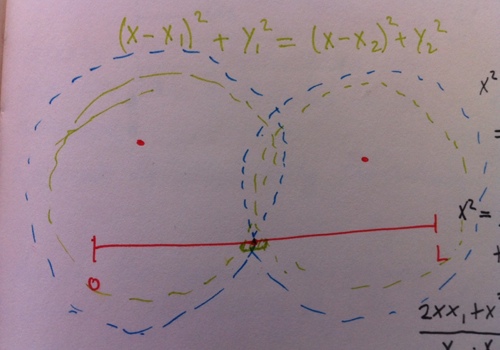 (x-x₁)² + y₁² = (x-x₂)² + y₂²
x²
=
x² =
+
O
L
2xx₁ + x²